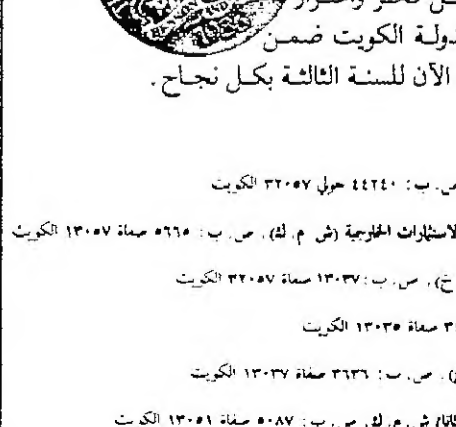 دولة الكويت ضمن
الآن للسنة الثالثة بكل نجاح .
ص. ب : ٤٤٢٤٠ حولي ٣٢٠٥٧ الكويت
الاستثمارات الخارجية (ش. م. ك) . ص. ب : ٥٦٦٥ صفاة ١٣٠٥٧ الكويت
ص. ب : ١٣٠٣٧ صفاة ٣٢٠٥٧ الكويت
صفاة ١٣٠٣٥ الكويت
ص. ب : ٣٦٣٦ صفاة ١٣٠٣٧ الكويت
ش. م. ك. ص. ب : ٥٠٨٧ صفاة ١٣٠٥١ الكويت